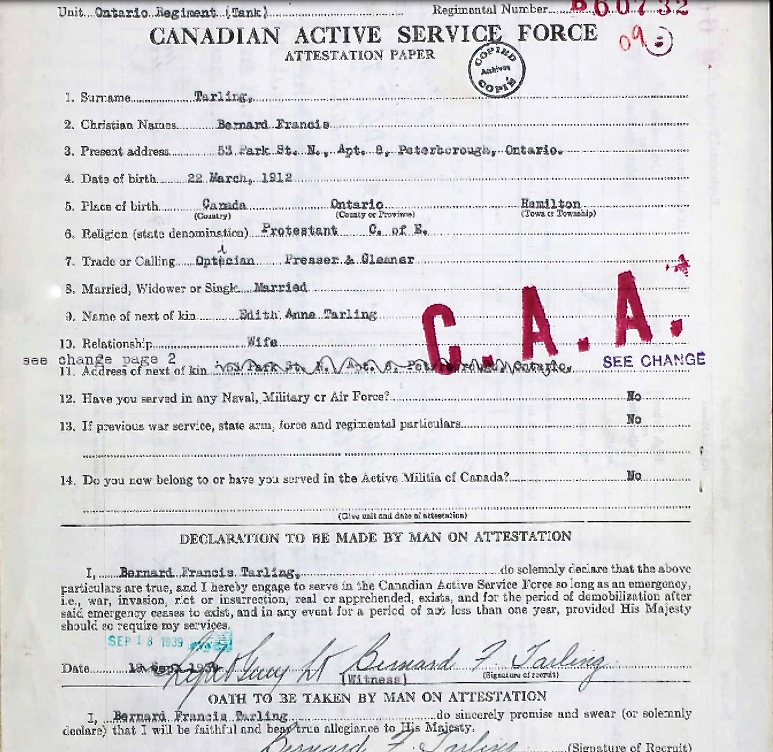 Unit Ontario Regiment (Tank) Regimental Number B60732
CANADIAN ACTIVE SERVICE FORCE
ATTESTATION PAPER
09
COPIED
Archives
COPIÉ
1. Surname Tarling,
2. Christian Names Bernard Francis
3. Present address 53 Park St. N., Apt. 8, Peterborough, Ontario.
4. Date of birth 22 March, 1912
5. Place of birth Canada Ontario Hamilton
(Country) (County or Province) (Town or Township)
6. Religion (state denomination) Protestant C. of E.
7. Trade or Calling Optecian Presser & Cleaner
8. Married, Widower or Single Married
9. Name of next of kin Edith Anne Tarling
10. Relationship Wife
C.A.A.
see change page 2
11. Address of next of kin 53 Park St. N., Apt. 8, Peterborough, Ontario. SEE CHANGE
12. Have you served in any Naval, Military or Air Force? No
13. If previous war service, state arm, force and regimental particulars No
14. Do you now belong to or have you served in the Active Militia of Canada? No
(Give unit and date of attestation)
DECLARATION TO BE MADE BY MAN ON ATTESTATION
I, Bernard Francis Tarling, do solemnly declare that the above
particulars are true, and I hereby engage to serve in the Canadian Active Service Force so long as an emergency,
i.e., war, invasion, riot or insurrection, real or apprehended, exists, and for the period of demobilization after
said emergency ceases to exist, and in any event for a period of not less than one year, provided His Majesty
should so require my services.
SEP 18 1939
Date Lt Bernard F. Tarling
(Witness) (Signature of recruit)
OATH TO BE TAKEN BY MAN ON ATTESTATION
I, Bernard Francis Tarling do sincerely promise and swear (or solemnly
declare) that I will be faithful and bear true allegiance to His Majesty.
Bernard F. Tarling (Signature of Recruit)